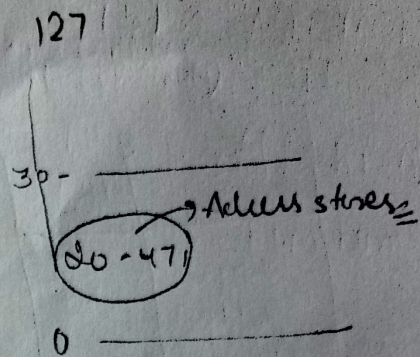 127
30 -
Adless stores
20-47
0